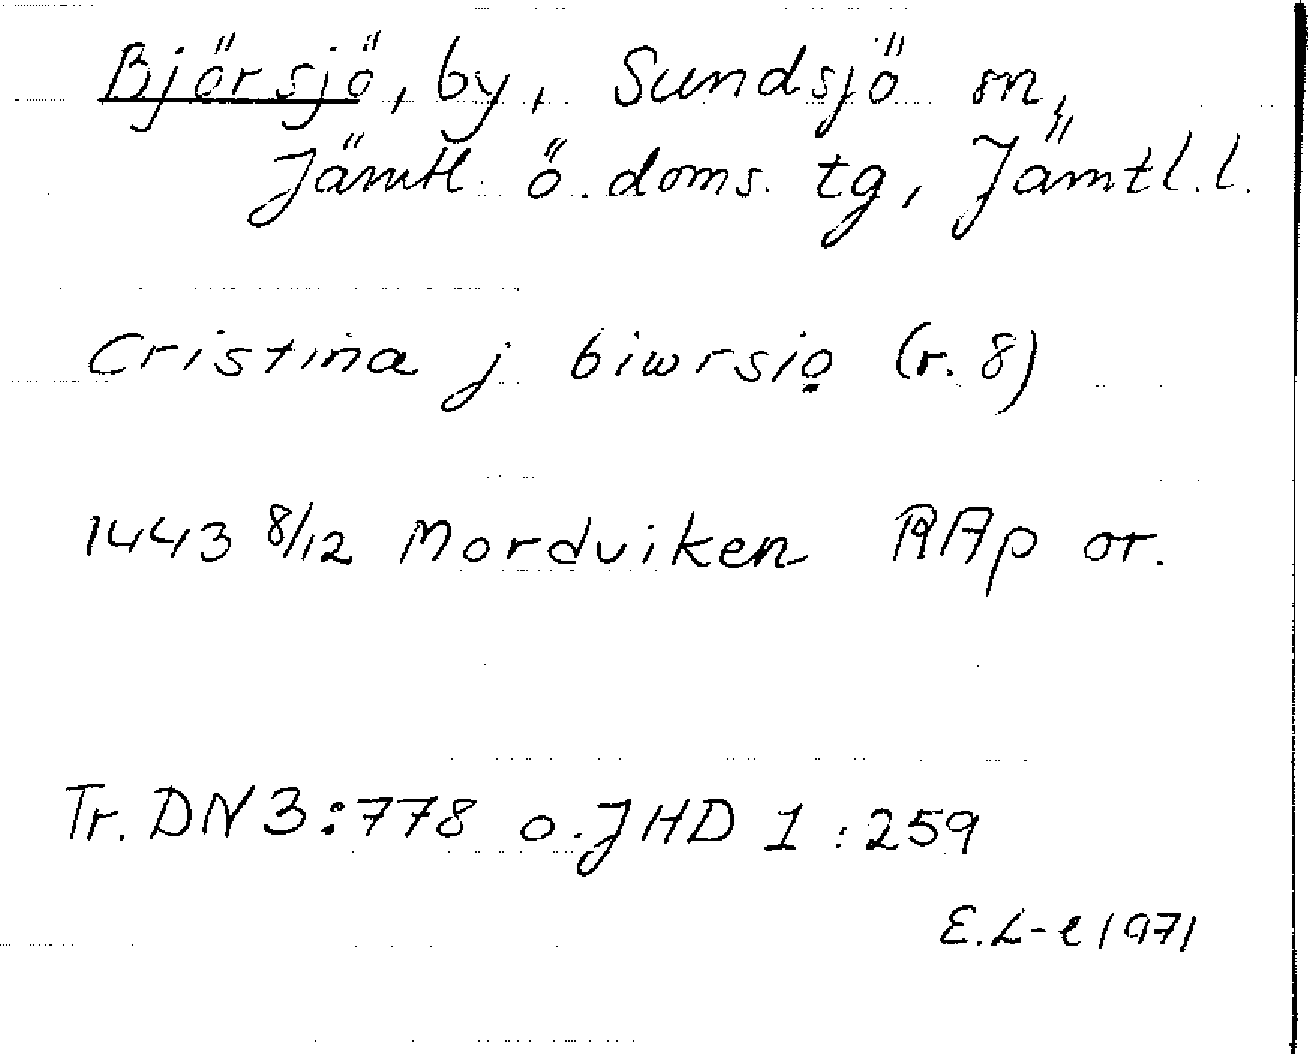 Björsjö, by, Sundsjö sn,
Jämtl. ö. doms. tg, Jämtl. l.
Cristina j biwrsio̱ (r. 8)
1443 8/12 Mordviken RAp or.
Tr. DN 3:778 o. JHD 1:259
E. L-e 1971